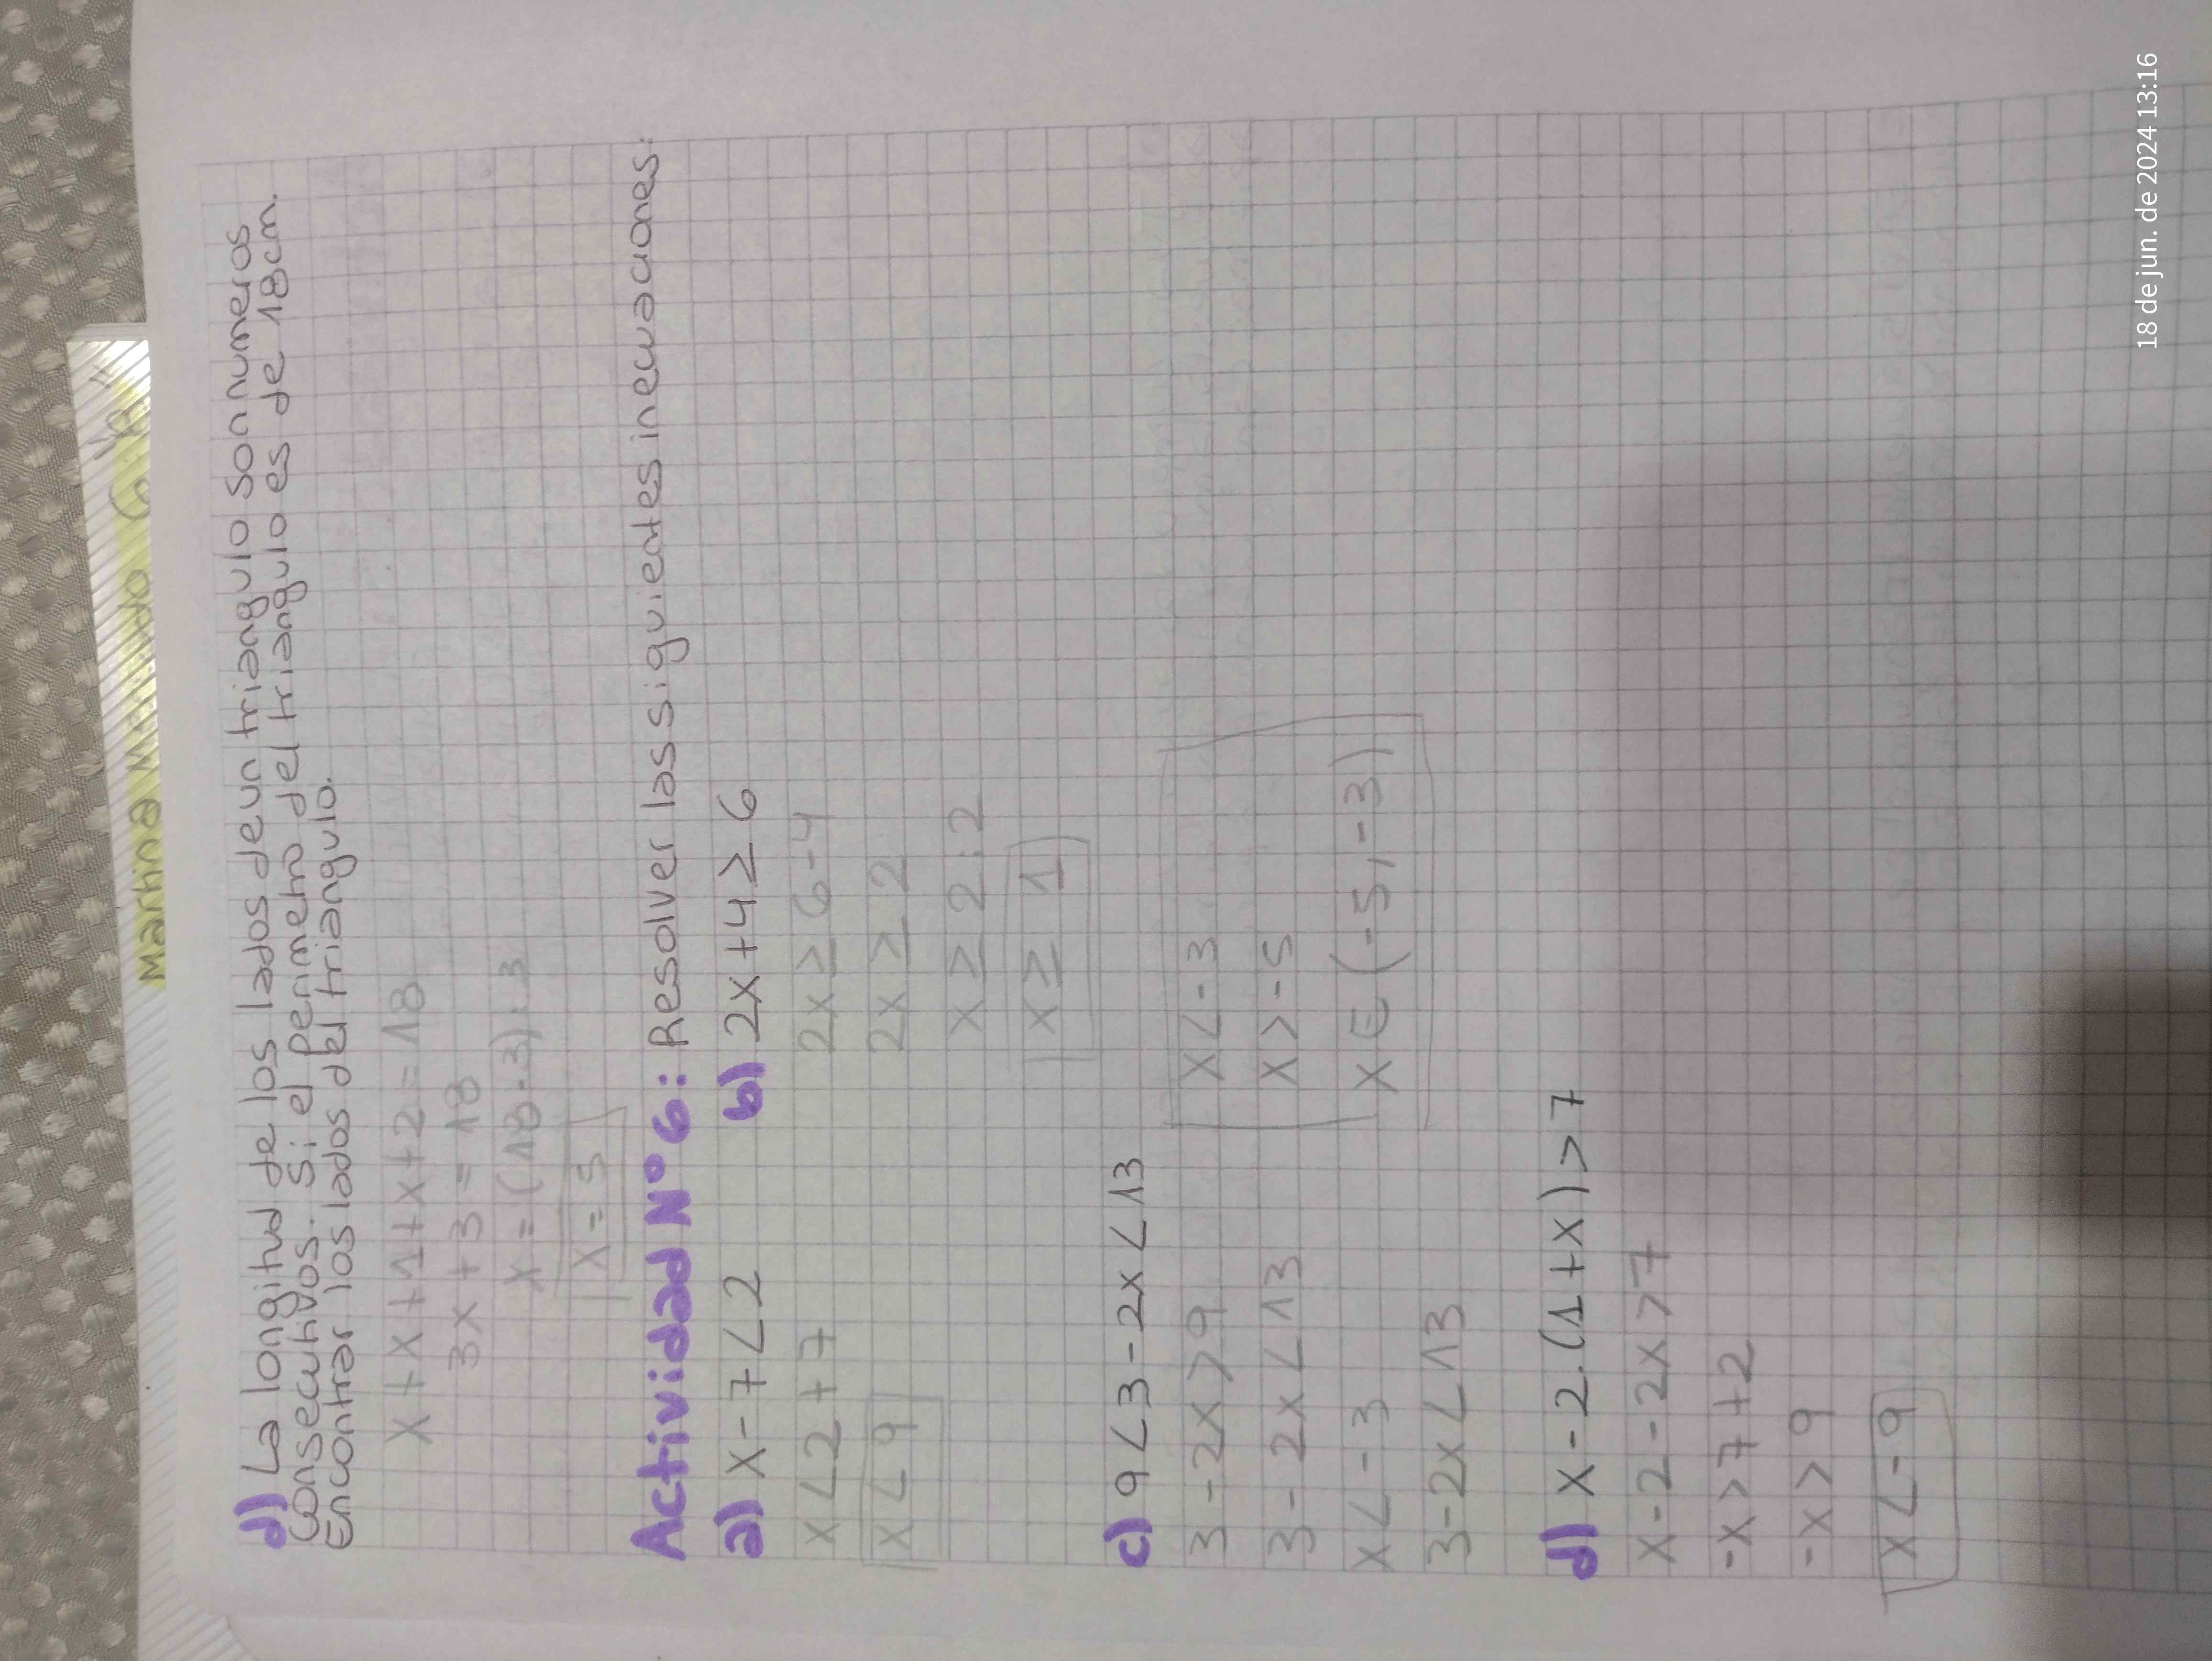 Martina Mansido 6:"A"
d) La longitud de los lados de un triangulo son numeros
consecutivos. Si el perimetro del triangulo es de 18cm.
Encontrar los lados del triangulo.
x+x+1+x+2=18
3x+3=18
x=(18-3):3
x=5
Actividad N°6: Resolver las siguientes inecuaciones:
a) x-7<2
x<2+7
x<9
b) 2x+4≥6
2x≥6-4
2x≥2
x≥2:2
x≥1
c) 9<3-2x<13
3-2x>9
3-2x<13
x<-3
3-2x<13
x<-3
x>-5
x∈(-5,-3)
d) x-2.(1+x)>7
x-2-2x>7
-x>7+2
-x>9
x<-9
18 de jun. de 2024 13:16